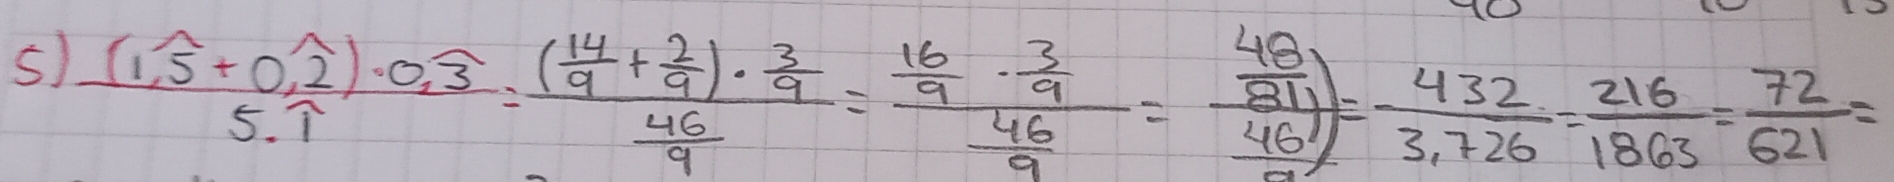 5) ((1,5̂ + 0,2̂) · 0,3̂)/(5.1̂) = ((14/9 + 2/9) · 3/9)/(46/9) = (16/9 · 3/9)/(46/9) = (48/81)/(46/9) = 432/3,726 = 216/1863 = 72/621 =